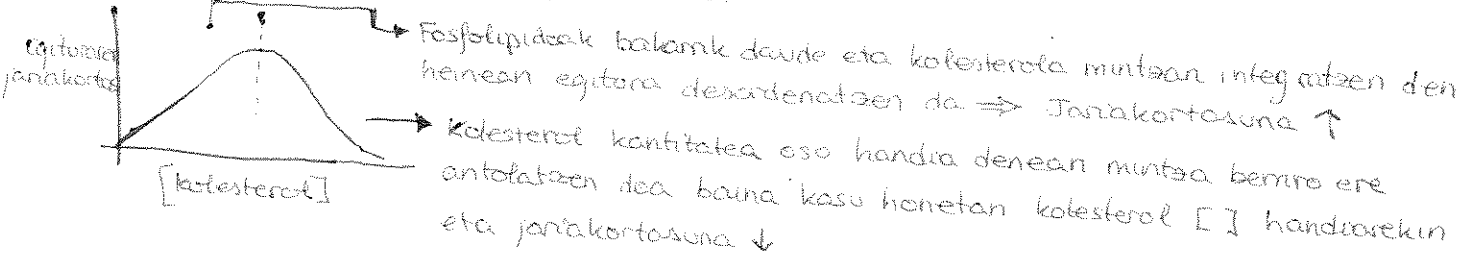 egituraren
jariakortas
[kolesterol]
Fosfolipidoak bakarrik daude eta kolesterola mintzan integratzen den
heinean egitura desordenatzen da ⇒ Jariakortasuna ↑
Kolesterol kantitatea oso handia denean mintza berriro ere
antolatzen doa baina kasu honetan kolesterol [ ] handiarekin
eta jariakortasuna ↓